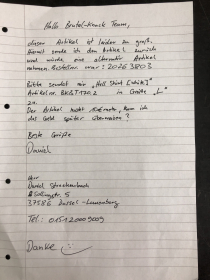 Hallo Brutal-Knack Team,
dieser Artikel ist leider zu groß.
Hiermit sende ich den Artikel zurück
und würde eine alternativ Artikel
nehmen. Bestellnr. war: 20263803
Bitte sendet mir „Hell Shirt [white]"
Artikel nr. in Größe „L"
zu.
Der Artikel kostet mehr, kann ich
das Geld später überweisen?
Beste Grüße
Daniel
Herr
Daniel
5
37586 Dassel-
Tel.: 015120009009
Danke :)